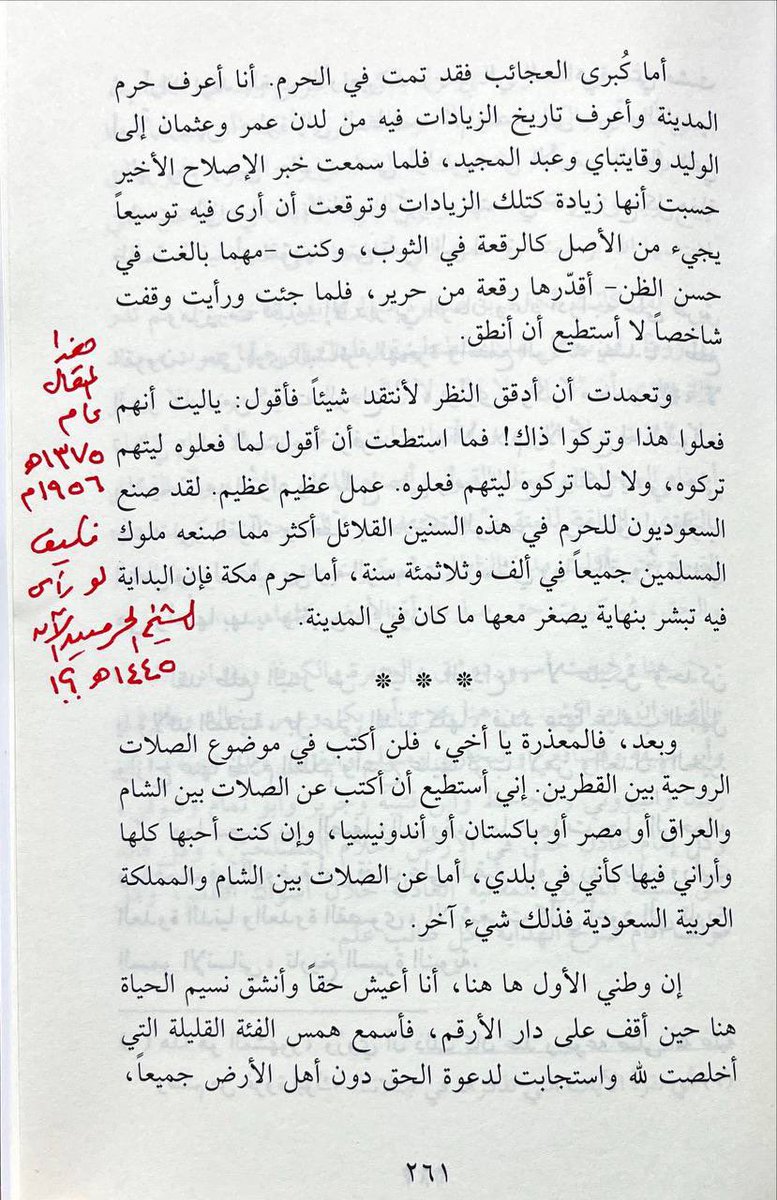 أما كُبرى العجائب فقد تمت في الحرم. أنا أعرف حرم
المدينة وأعرف تاريخ الزيادات فيه من لدن عمر وعثمان إلى
الوليد وقايتباي وعبد المجيد، فلما سمعت خبر الإصلاح الأخير
حسبت أنها زيادة كتلك الزيادات وتوقعت أن أرى فيه توسيعاً
يجيء من الأصل كالرقعة في الثوب، وكنت -مهما بالغت في
حسن الظن- أقدّرها رقعة من حرير، فلما جئت ورأيت وقفت
شاخصاً لا أستطيع أن أنطق.
وتعمدت أن أدقق النظر لأنتقد شيئاً فأقول: ياليت أنهم
فعلوا هذا وتركوا ذاك! فما استطعت أن أقول لما فعلوه ليتهم
تركوه، ولا لما تركوه ليتهم فعلوه. عمل عظيم عظيم. لقد صنع
السعوديون للحرم في هذه السنين القلائل أكثر مما صنعه ملوك
المسلمين جميعاً في ألف وثلاثمئة سنة، أما حرم مكة فإن البداية
فيه تبشر بنهاية يصغر معها ما كان في المدينة.
* * *
وبعد، فالمعذرة يا أخي، فلن أكتب في موضوع الصلات
الروحية بين القطرين. إني أستطيع أن أكتب عن الصلات بين الشام
والعراق أو مصر أو باكستان أو أندونيسيا، وإن كنت أحبها كلها
وأراني فيها كأني في بلدي، أما عن الصلات بين الشام والمملكة
العربية السعودية فذلك شيء آخر.
إن وطني الأول ها هنا، أنا أعيش حقاً وأنشق نسيم الحياة
هنا حين أقف على دار الأرقم، فأسمع همس الفئة القليلة التي
أخلصت لله واستجابت لدعوة الحق دون أهل الأرض جميعاً،
٢٦١
هذا
المقال
عام
١٣٧٥هـ
١٩٥٦م
فكيف
لو رأى
الشيخ الحرمين الآن
١٤٤٥هـ ؟!